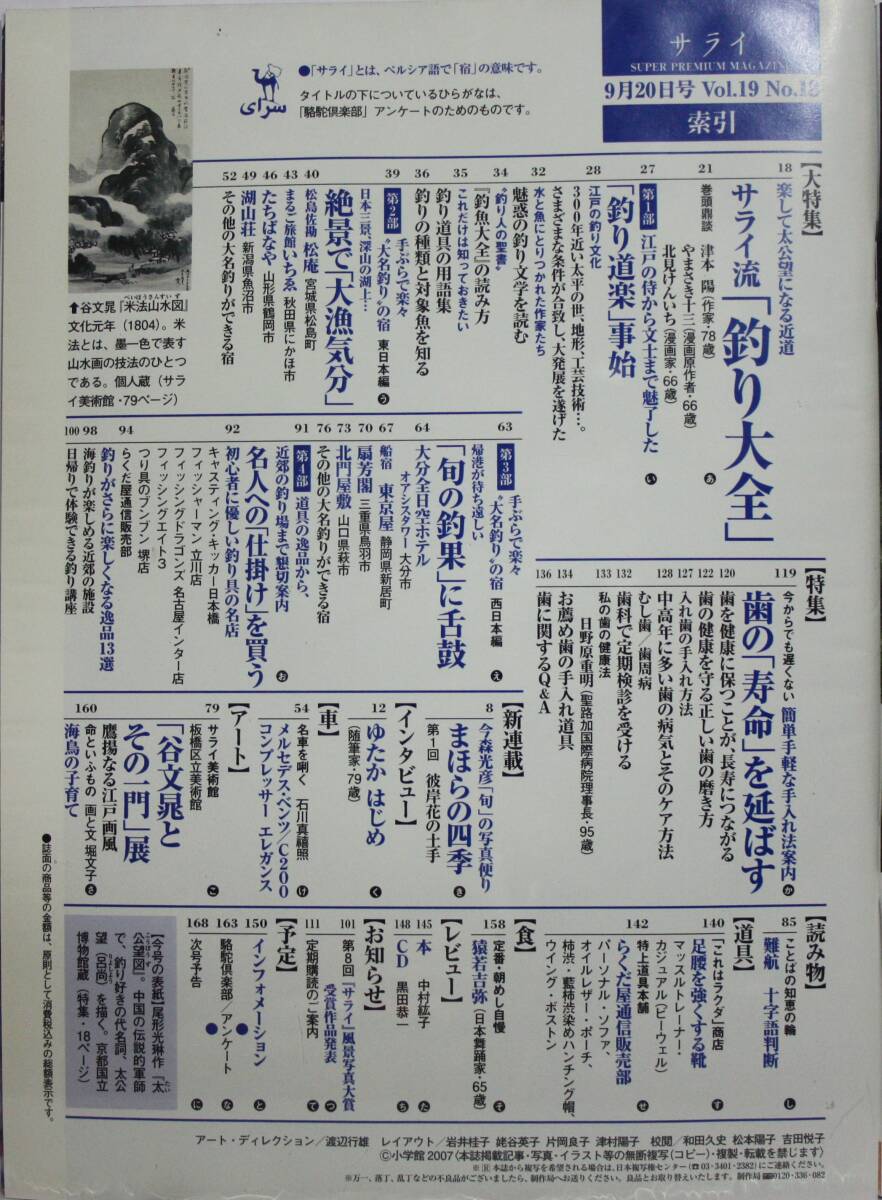 サライ
SUPER PREMIUM MAGAZINE
9月20日号 Vol.19 No.18
索引
●「サライ」とは、ペルシア語で「宿」の意味です。
タイトルの下についているひらがなは、
「駱駝倶楽部」アンケートのためのものです。
سرای
↑谷文晁『米法山水図』
べいほうさんすいず
文化元年(1804)。米
法とは、墨一色で表す
山水画の技法のひとつ
である。個人蔵(サラ
イ美術館・79ページ)
【大特集】
18 楽して太公望になる近道
サライ流「釣り大全」
21 巻頭鼎談 津本 陽(作家・78歳)
やまさき十三(漫画原作者・66歳)
北見けんいち(漫画家・66歳) あ
27 第1部 江戸の侍から文士まで魅了した
「釣り道楽」事始 い
28 江戸の釣り文化
300年近い太平の世、地形、工芸技術…。
さまざまな条件が合致し、大発展を遂げた
32 水と魚にとりつかれた作家たち
魅惑の釣り文学を読む
34 “釣り人の聖書”
『釣魚大全』の読み方
35 これだけは知っておきたい
釣り道具の用語集
36 釣りの種類と対象魚を知る
39 第2部 手ぶらで楽々
“大名釣り”の宿 東日本編 う
日本三景、深山の湖上…
絶景で「大漁気分」
40 松島佐勘 松庵 宮城県松島町
43 まるご旅館いちゑ 秋田県にかほ市
46 たちばなや 山形県鶴岡市
49 湖山荘 新潟県魚沼市
52 その他の大名釣りができる宿
63 第3部 手ぶらで楽々
“大名釣り”の宿 西日本編 え
帰港が待ち遠しい
「旬の釣果」に舌鼓
64 大分全日空ホテル
オアシスタワー 大分市
67 船宿 東京屋 静岡県新居町
70 扇芳閣 三重県鳥羽市
73 北門屋敷 山口県萩市
76 その他の大名釣りができる宿
91 第4部 道具の逸品から、
近郊の釣り場まで懇切案内
名人への「仕掛け」を買う お
92 初心者に優しい釣り具の名店
キャスティング・キッカー日本橋
フィッシャーマン 立川店
フィッシングドラゴンズ 名古屋インター店
フィッシングエイト3
つり具のブンブン 堺店
94 らくだ屋通信販売部
釣りがさらに楽しくなる逸品13選
98 海釣りが楽しめる近郊の施設
100 日帰りで体験できる釣り講座
【特集】
119 今からでも遅くない 簡単手軽な手入れ法案内
歯の「寿命」を延ばす か
120 歯を健康に保つことが、長寿につながる
122 歯の健康を守る正しい歯の磨き方
127 入れ歯の手入れ方法
128 中高年に多い歯の病気とそのケア方法
むし歯/歯周病
132 歯科で定期検診を受ける
133 私の歯の健康法
日野原重明(聖路加国際病院理事長・95歳)
134 お薦め歯の手入れ道具
136 歯に関するQ&A
【新連載】
8 今森光彦「旬」の写真便り
まほらの四季 き
第1回 彼岸花の土手
【インタビュー】
12 ゆたか はじめ く
(随筆家・79歳)
【車】
54 名車を唎く 石川真禧照
メルセデス・ベンツ/C200
コンプレッサー エレガンス け
【アート】
79 サライ美術館
板橋区立美術館 こ
「谷文晁と
その一門」展
鷹揚なる江戸画風
160 命といふもの 画と文 堀文子 さ
海鳥の子育て
【読み物】
85 ことばの知恵の輪
難航 十字語判断 し
【道具】
140 「これはラクダ」商店
足腰を強くする靴 す
マッスルトレーナー・
カジュアル(ピーウェル)
142 特上道具本舗
らくだ屋通信販売部 せ
パーソナル・ソファ、
オイルレザー・ポーチ、
柿渋・藍柿渋染めハンチング帽、
ウイング・ボストン
【食】
158 定番・朝めし自慢
猿若吉弥(日本舞踊家・65歳) そ
【レビュー】
145 本 中村紘子 た
148 CD 黒田恭一 ち
【お知らせ】
101 第8回「サライ」風景写真大賞
受賞作品発表 つ
111 定期購読のご案内 て
【予定】
150 インフォメーション と
163 駱駝倶楽部/アンケート な
168 次号予告 に
【今号の表紙】尾形光琳作『太
公望図』。中国の伝説的軍師
で、釣り好きの代名詞、太公
望(呂尚)を描く。京都国立
博物館蔵(特集・18ページ)
●誌面の商品等の金額は、原則として消費税込みの総額表示です。
アート・ディレクション/渡辺行雄 レイアウト/岩井桂子 姥谷英子 片岡良子 津村陽子 校閲/和田久史 松本陽子 吉田悦子
Ⓒ小学館 2007〈本誌掲載記事・写真・イラスト等の無断複写(コピー)・複製・転載を禁じます〉
※Ⓡ本誌から複写を希望される場合は、日本複写権センター(☎03・3401・2382)にご連絡ください。
※万一、落丁、乱丁などの不良品がございましたら、制作局へお送りください。良品とお取り替えいたします。制作局 0120・336・082